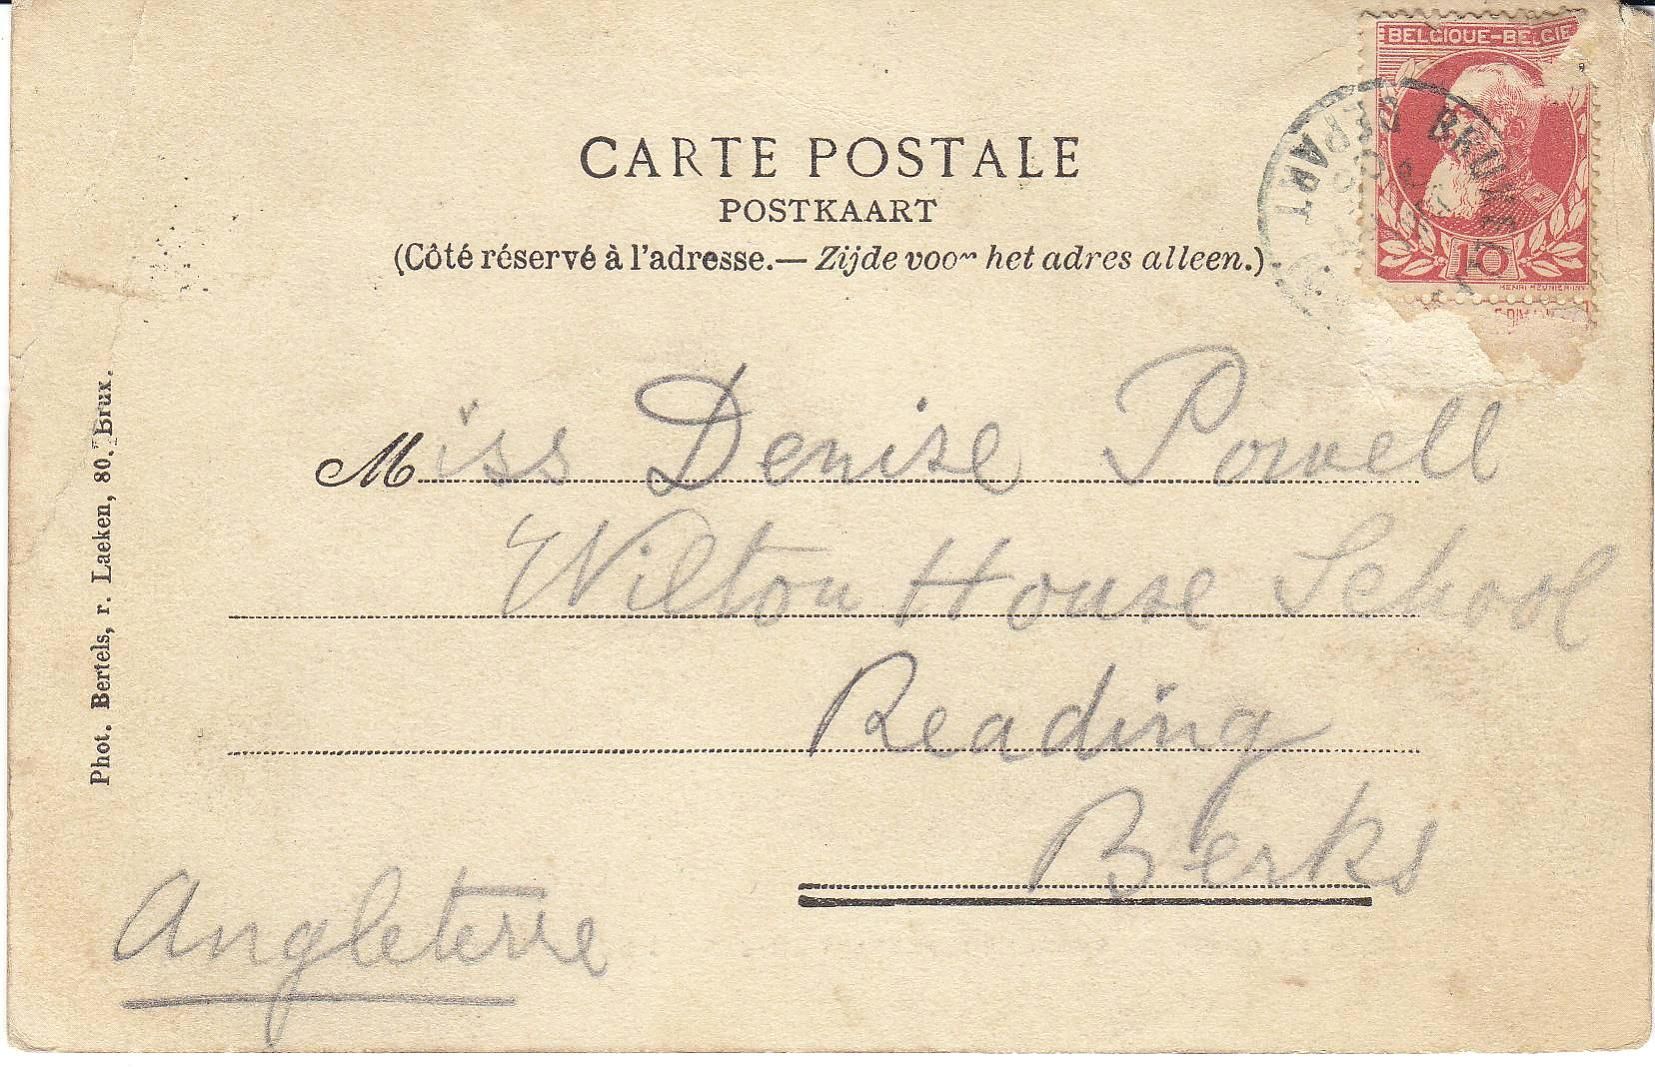 BELGIQUE-BELGIE
10
HENRI MEUNIER INV
DEPART
CARTE POSTALE
POSTKAART
(Côté réservé à l'adresse.— Zijde voor het adres alleen.)
Miss Denise Powell
Wilton House School
Reading
Berks
Angleterre
Phot. Bertels, r. Laeken, 80. Brux.